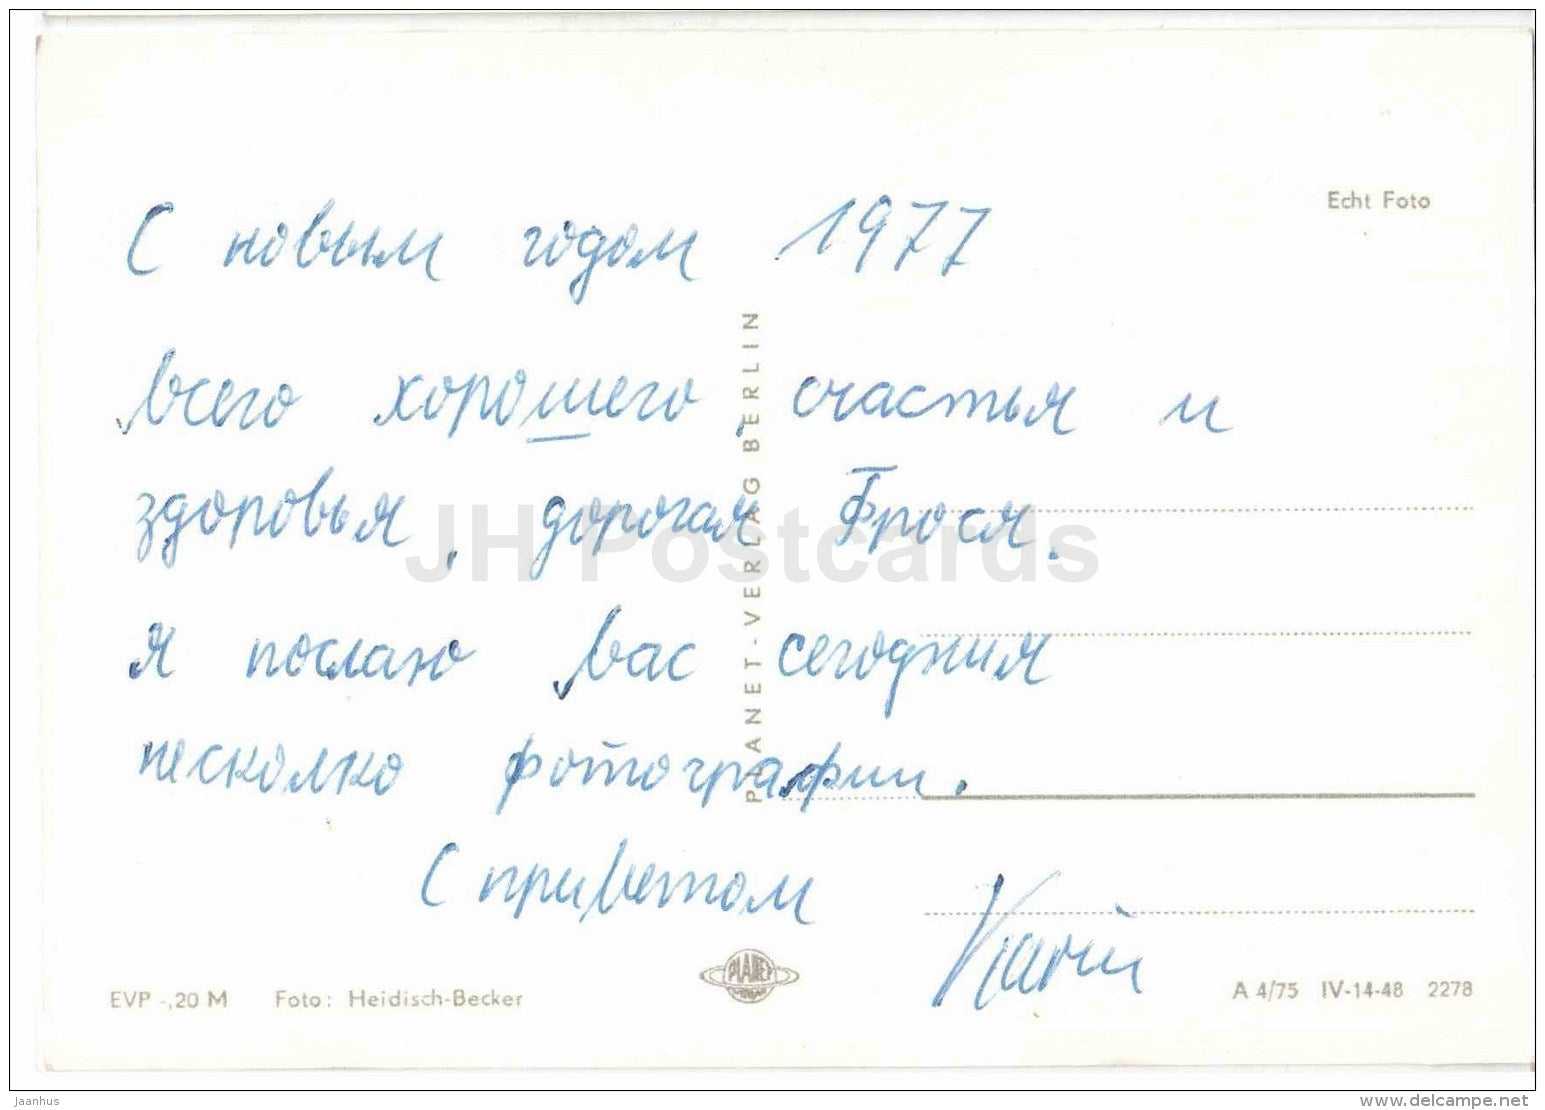 Echt Foto
С новым годом 1977
всего хорошего, счастья и
здоровья, дорогая Фрося.
Я послаю вас сегодния
несколко фотографии.
С приветом
Karin
PLANET-VERLAG BERLIN
PLANET
EVP -,20 M Foto: Heidisch-Becker
A 4/75 IV-14-48 2278
JH Postcards
Jaanhus
www.delcampe.net